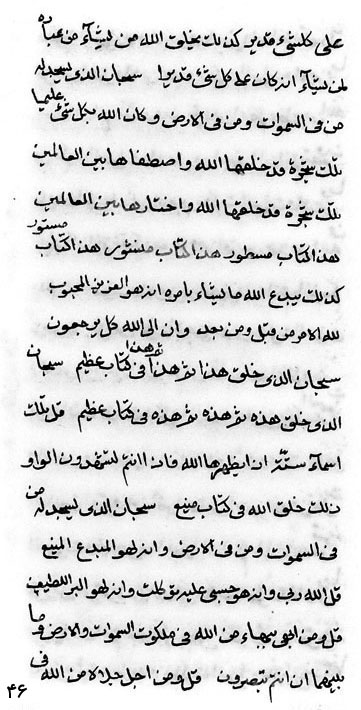 على كلشيء قدير كذلك يخلق الله من يشآء من عباده
لمن يشآء انه كان على كل شيء قديرا سبحان الذي يسجد له
من في السموات ومن في الارض وكان الله بكل شيء عليما
تلك شجرة قد خلقها الله واصطفاها بين العالمين
تلك شجرة قد خلقها الله واختارها بين العالمين
هذا الكتاب مسطور هذا الكتاب منشور هذا الكتاب مستور
كذلك يبدع الله ما يشآء بامره انه هو العزيز المحبوب
لله الامر من قبل ومن بعد وان الى الله كل يرجعون
سبحان الذي خلق هذا ثم هذا ثم هذا في كتاب عظيم سبحان
الذي خلق هذه ثم هذه ثم هذه في كتاب عظيم قل تلك
اسمآء ستة ان يظهرها الله فان انتم لتشهدون الواو
ذلك خلق الله في كتاب منيع سبحان الذي يسجد له من
في السموات ومن في الارض وانه لهو المبدع المنيع
قل الله ربي وانه هو حسبي عليه توكلت وانه لهو البر اللطيف
قل ومن ابهى بهاء من الله في ملكوت السموات والارض وما
بينهما ان انتم تبصرون قل ومن اجل جلالا من الله في
۴۶